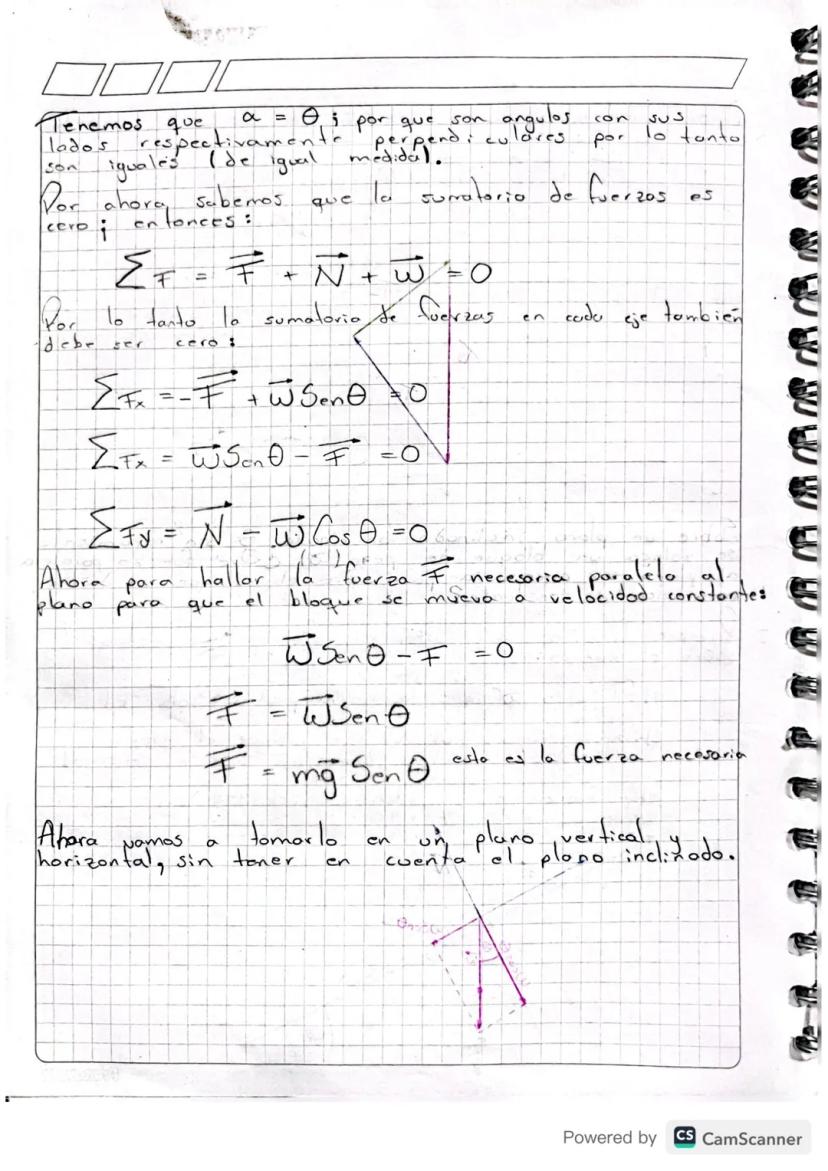 Tenemos que α = θ ; por que son angulos con sus
lados respectivamente perpendiculares por lo tanto
son iguales (de igual medida).
Por ahora sabemos que la sumatoria de fuerzas es
cero ; entonces :
∑F = F⃗ + N⃗ + w⃗ = 0
Por lo tanto la sumatoria de fuerzas en cada eje también
debe ser cero :
∑Fx = -F⃗ + w⃗ Sen θ = 0
∑Fx = w⃗ Sen θ - F⃗ = 0
∑Fy = N⃗ - w⃗ Cos θ = 0
Ahora para hallar la fuerza F⃗ necesaria paralela al
plano para que el bloque se mueva a velocidad constante:
w⃗ Sen θ - F = 0
F⃗ = w⃗ Sen θ
F⃗ = mg⃗ Sen θ esta es la fuerza necesaria
Ahora vamos a tomarlo en un plano vertical y
horizontal, sin tener en cuenta el plano inclinado.
Powered by CS CamScanner